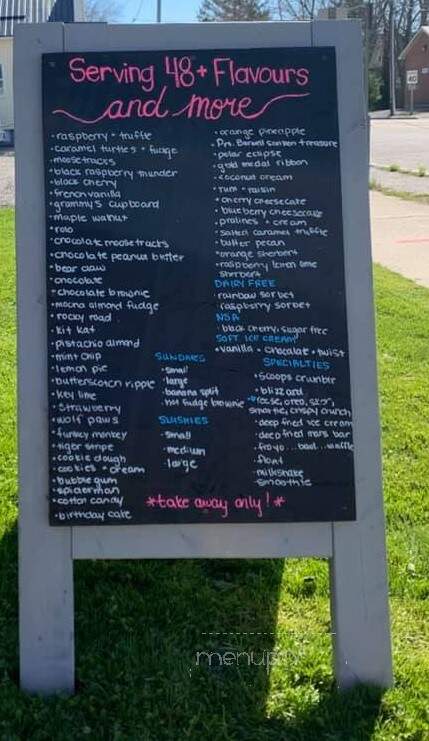 Serving 48+ Flavours
and more
• raspberry + truffle
• caramel turtles + fudge
• moosetracks
• black raspberry thunder
• black cherry
• french vanilla
• grammy's cupboard
• maple walnut
• rolo
• chocolate moosetracks
• chocolate peanut butter
• bear claw
• chocolate
• chocolate brownie
• mocha almond fudge
• rocky road
• kit kat
• pistachio almond
• mint chip
• lemon pie
• butterscotch ripple
• key lime
• strawberry
• wolf paws
• funky monkey
• tiger stripe
• cookie dough
• cookies + cream
• bubble gum
• spiderman
• cotton candy
• birthday cake
SUNDAES
• small
• large
• banana split
• hot fudge brownie
SLUSHIES
• small
• medium
• large
• orange pineapple
• treasure
• polar eclipse
• gold medal ribbon
• coconut cream
• rum + raisin
• cherry cheesecake
• blueberry cheesecake
• pralines + cream
• salted caramel truffle
• butter pecan
• orange sherbert
• raspberry lemon lime
sherbert
DAIRY FREE
• rainbow sorbet
• raspberry sorbet
NSA
• black cherry, sugar free
SOFT ICE CREAM
• vanilla • chocolate • twist
SPECIALTIES
• scoops crumblr
• blizzard
reese, oreo, skor,
smartie, crispy crunch
• deep fried ice cream
• deep fried mars bar
• froyo...bowl...waffle
• float
• milkshake
• smoothie
*take away only!*
40
menupix